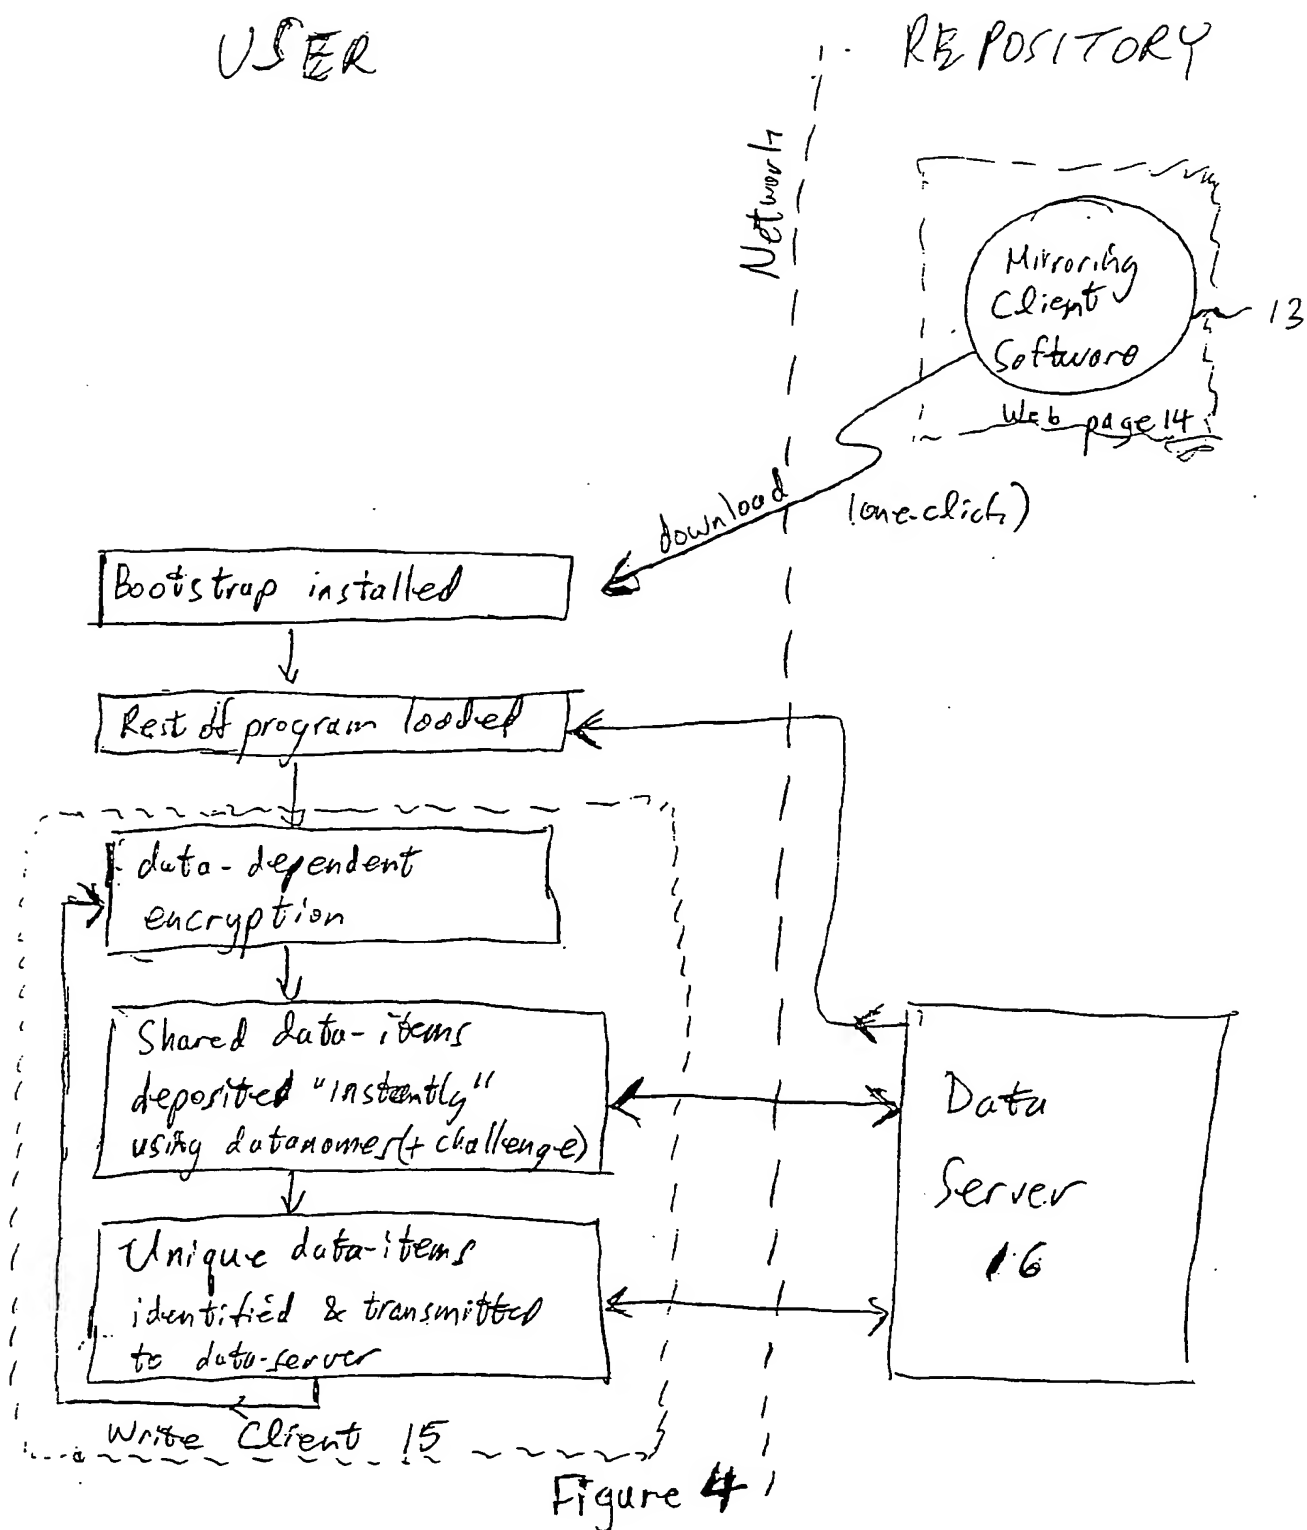 USER
REPOSITORY
Network
Mirroring
Client
Software
13
Web page 14
download
(one-click)
Bootstrap installed
Rest of program loaded
data-dependent
encryption
Shared data-items
deposited "instantly"
using datanames (+ challenge)
Data
Server
16
Unique data-items
identified & transmitted
to data-server
Write Client 15
Figure 4